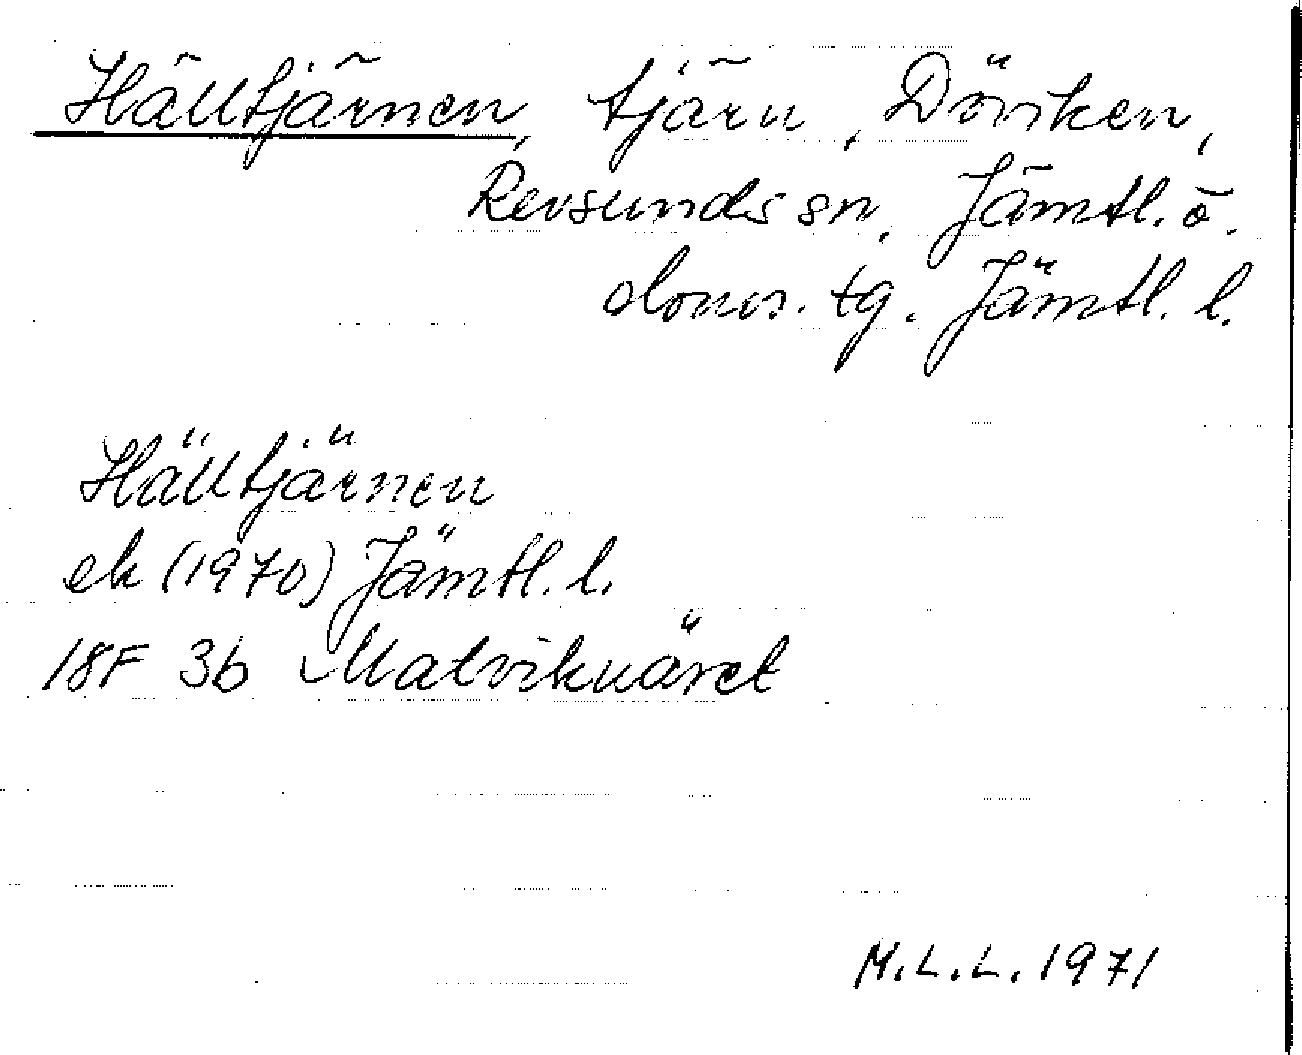 Hälltjärnen, tjärn, Döviken,
Revsunds sn, Jämtl. ö.
doms. tg. Jämtl. l.
Hälltjärnen
ek (1970) Jämtl. l.
18F 3b Matviknäret
M.L.L. 1971